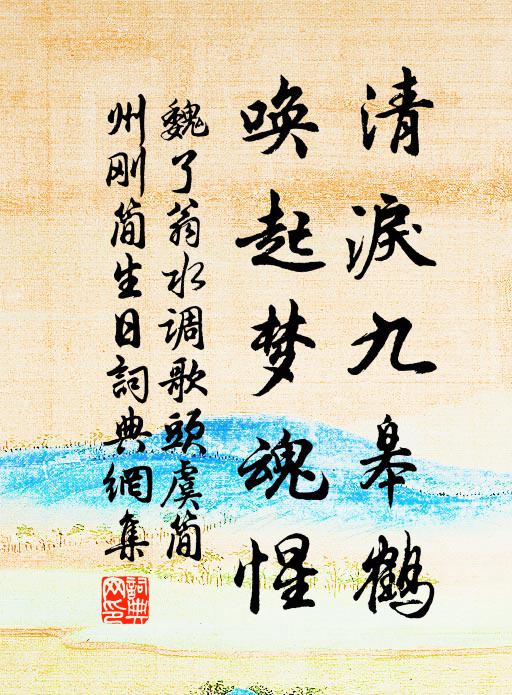 清淚九皋鹤
唤起梦魂惺
魏了翁水调歌頭虞简
州刚简生日詞典網集
詞典網印